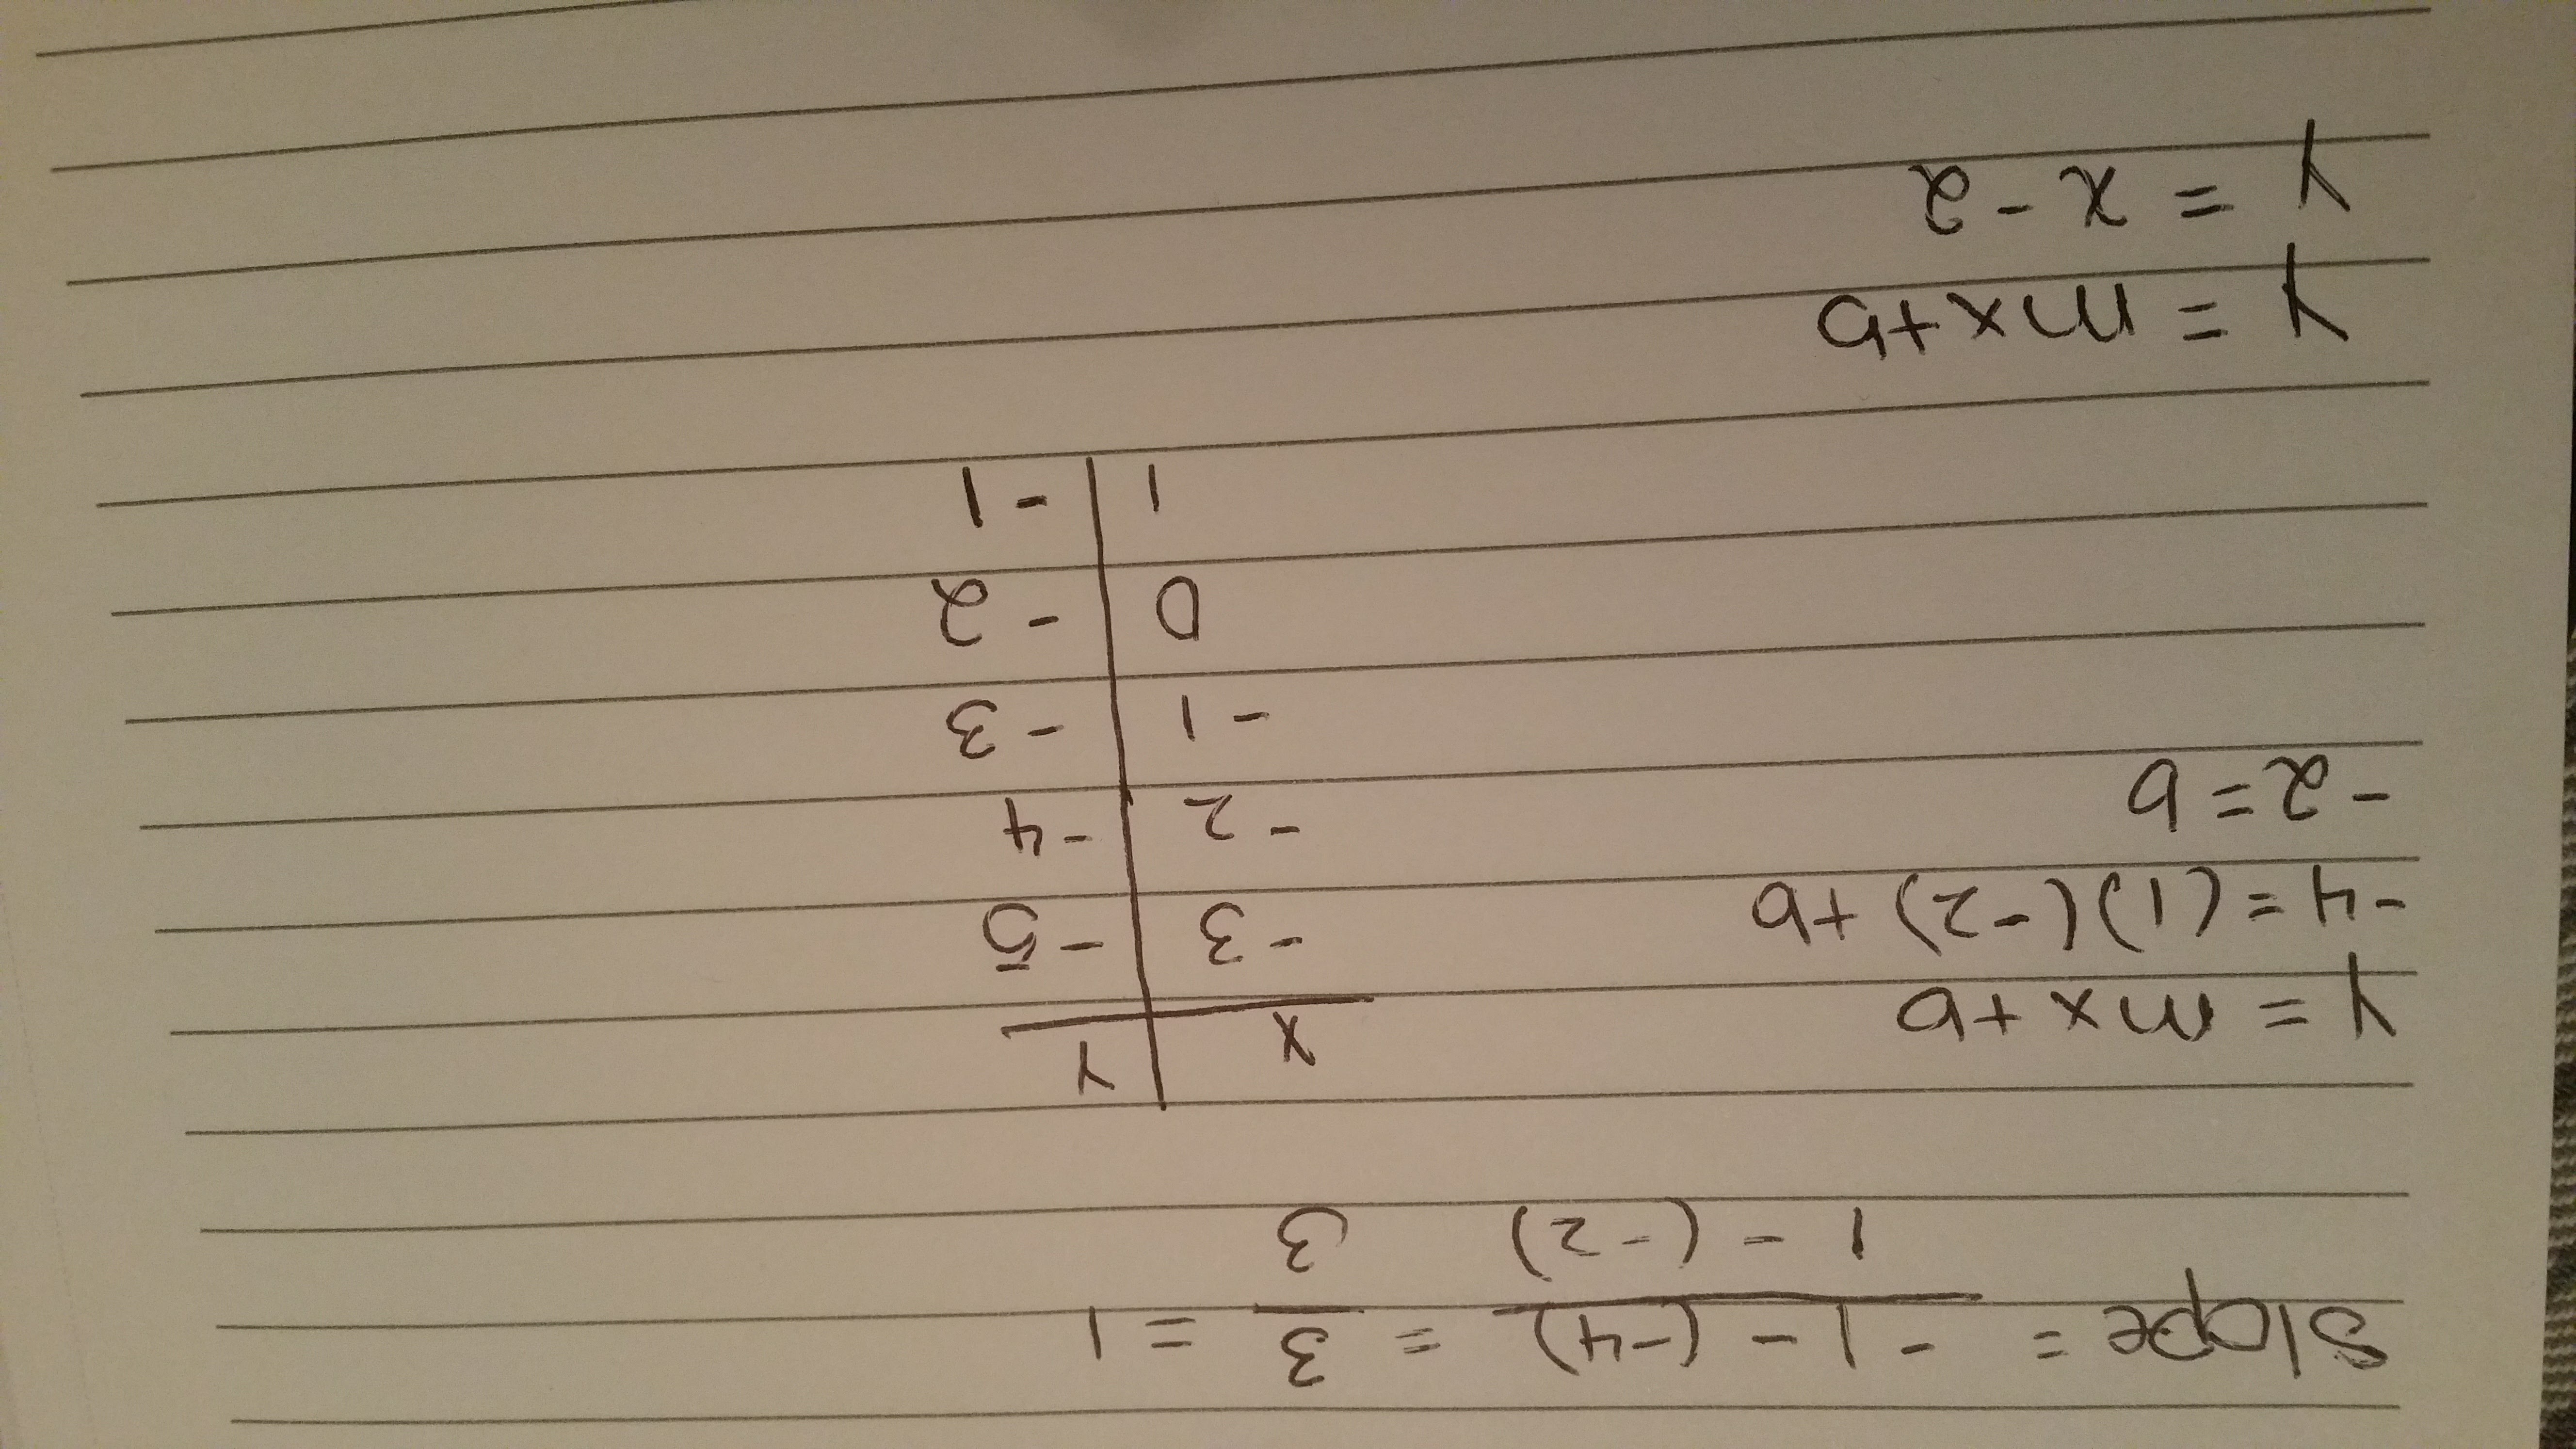 Slope = -1 - (-4) = 3 = 1
1 - (-2) 3
Y = mx + b
-4 = (1)(-2) + b
-2 = b
X Y
-3 -5
-2 -4
-1 -3
0 -2
1 -1
Y = mx + b
Y = x - 2